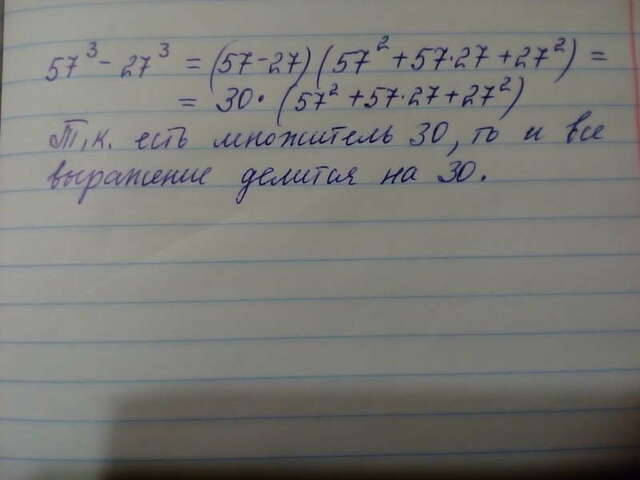 57³ - 27³ = (57-27)(57² + 57·27 + 27²) =
= 30·(57² + 57·27 + 27²)
Т.к. есть множитель 30, то и все
выражение делится на 30.